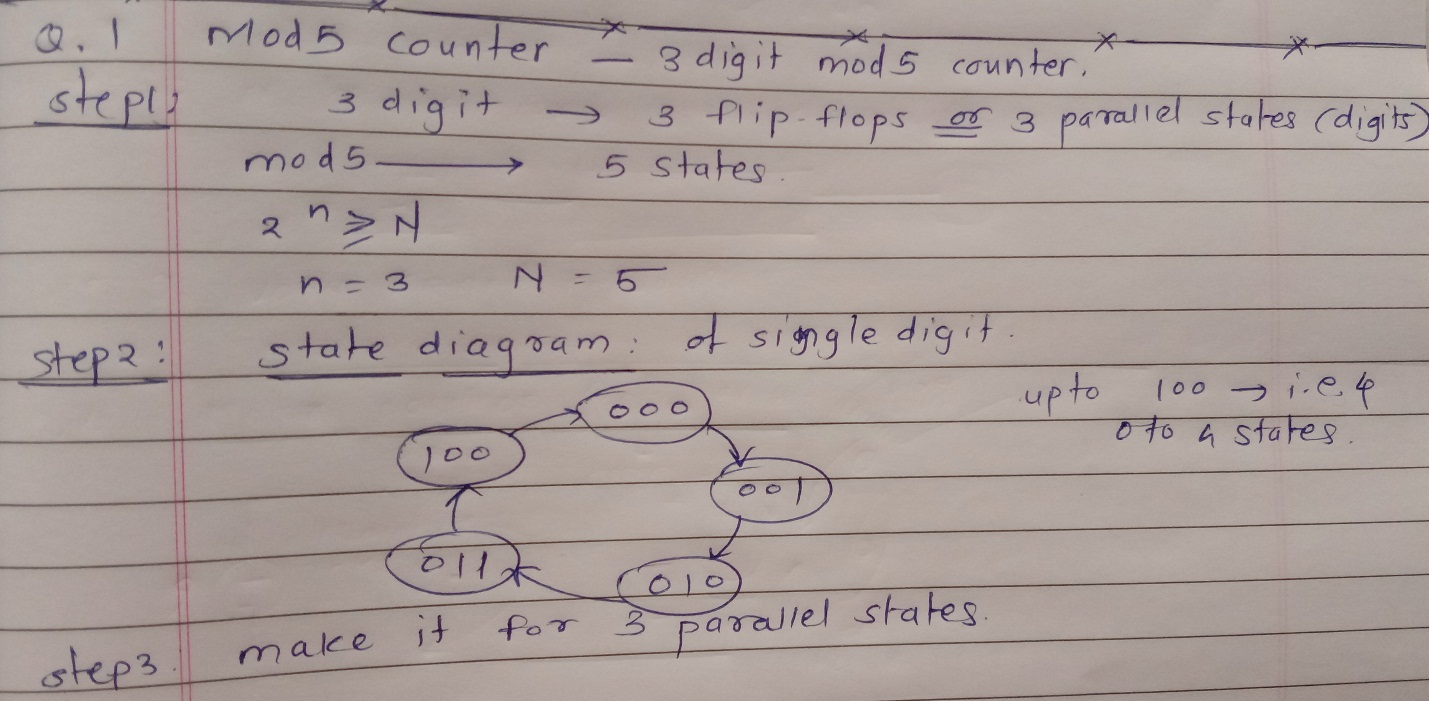 Q. 1 Mod 5 counter - 3 digit mod 5 counter.
step1: 3 digit → 3 flip-flops or 3 parallel states (digits)
mod 5 → 5 states.
2^n ≥ N
n = 3 N = 5
step 2: state diagram: of single digit.
upto 100 → i.e. 4
0 to 4 states.
000
100
001
011
010
step 3. make it for 3 parallel states.